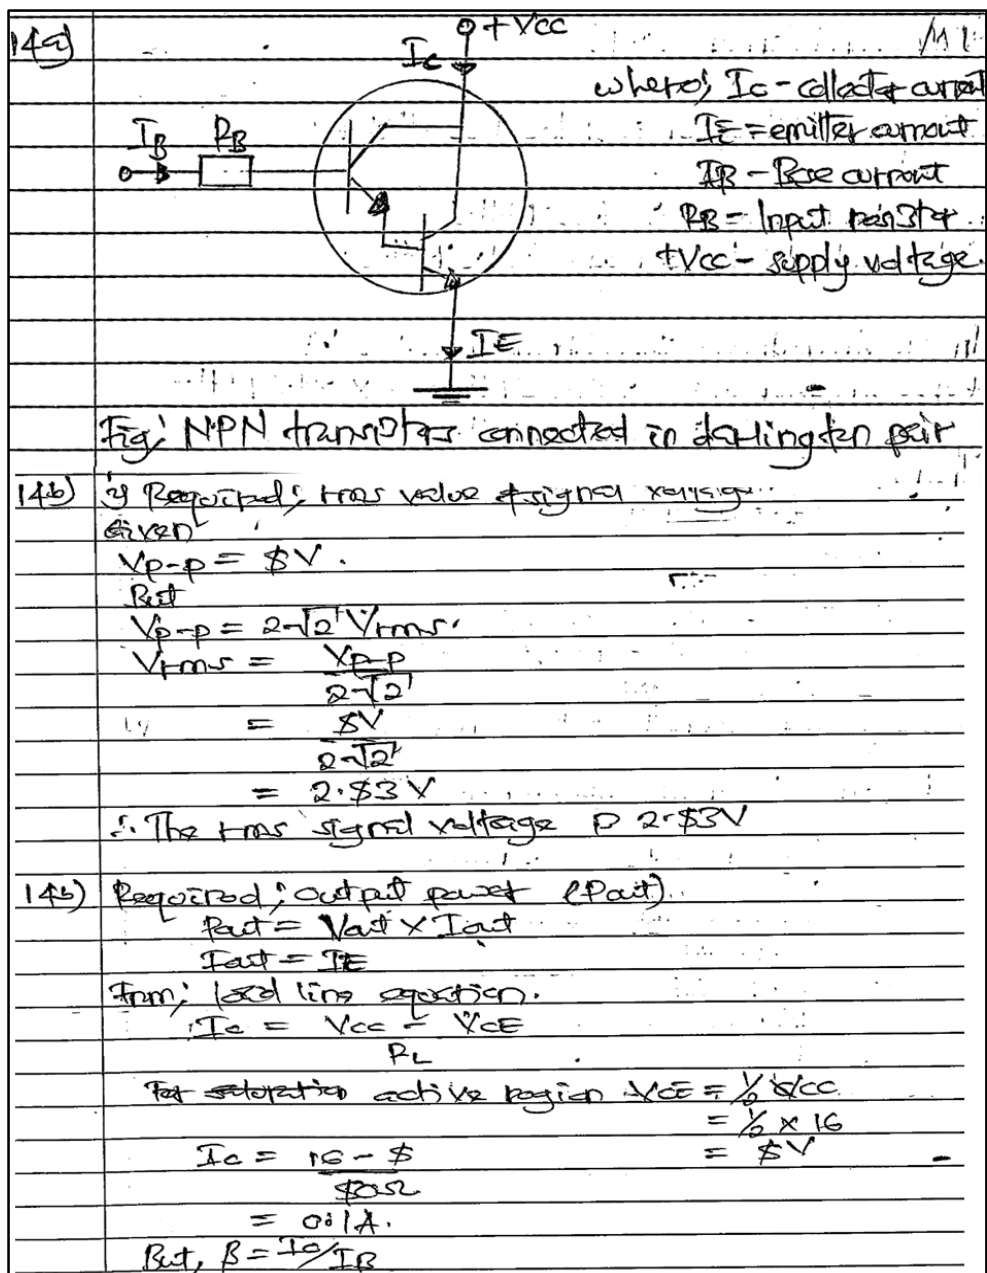 14a)
+Vcc
Ic
where; Ic - collector current
IE = emitter current
IB RB
IB - Base current
RB - Input resistor
+Vcc - supply voltage.
IE
Fig; NPN transistors connected in darlington pair
14b) i) Required; rms value of signal voltage
Given
Vp-p = 8V.
But
Vp-p = 2√2 Vrms.
Vrms = Vp-p
2√2
= 8V
2√2
= 2.83 V
∴ The rms signal voltage is 2.83V
14b) Required; output power (Pout).
Pout = Vout x Iout
Iout = IE
From; load line equation.
Ic = Vcc - VCE
RL
For saturation active region VCE = 1/2 Vcc
= 1/2 x 16
Ic = 16 - 8 = 8V
80Ω
= 0.1A.
But, β = Ic/IB